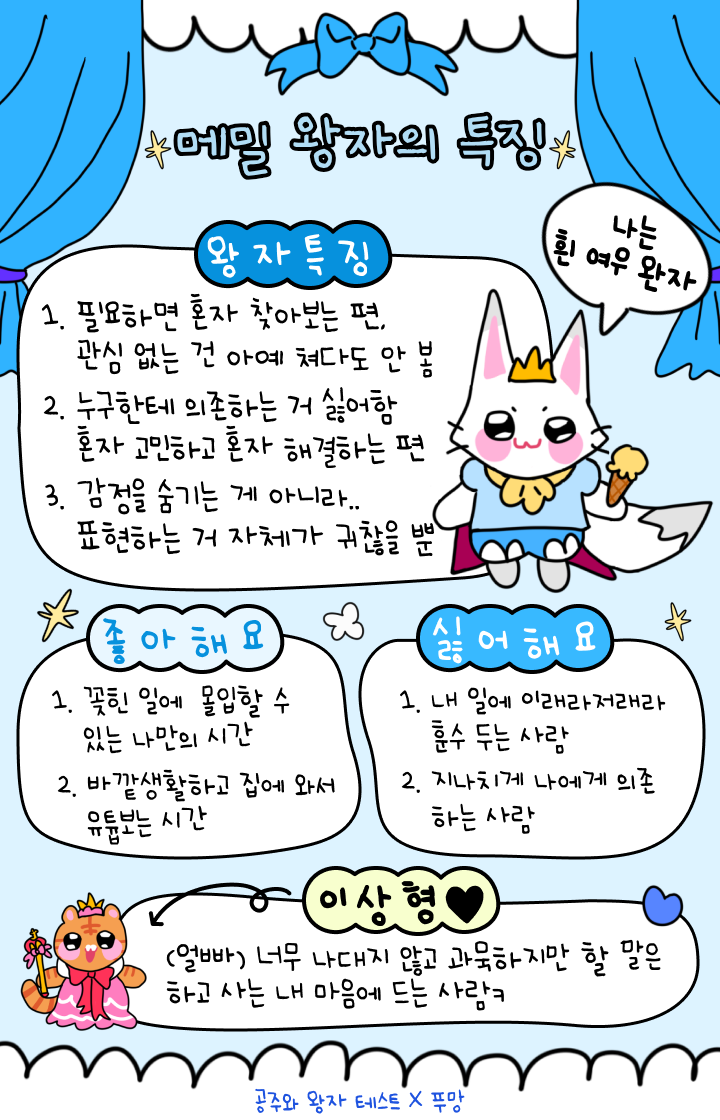 메밀 왕자의 특징
나는
흰 여우 왕자
왕자특징
1. 필요하면 혼자 찾아보는 편,
관심 없는 건 아예 쳐다도 안 봄
2. 누구한테 의존하는 거 싫어함
혼자 고민하고 혼자 해결하는 편
3. 감정을 숨기는 게 아니라..
표현하는 거 자체가 귀찮을 뿐
좋아해요
1. 꽂힌 일에 몰입할 수
있는 나만의 시간
2. 바깥생활하고 집에 와서
유튭보는 시간
싫어해요
1. 내 일에 이래라저래라
훈수 두는 사람
2. 지나치게 나에게 의존
하는 사람
이상형♥
(얼빠) 너무 나대지 않고 과묵하지만 할 말은
하고 사는 내 마음에 드는 사람ㅋ
공주와 왕자 테스트 X 푸망